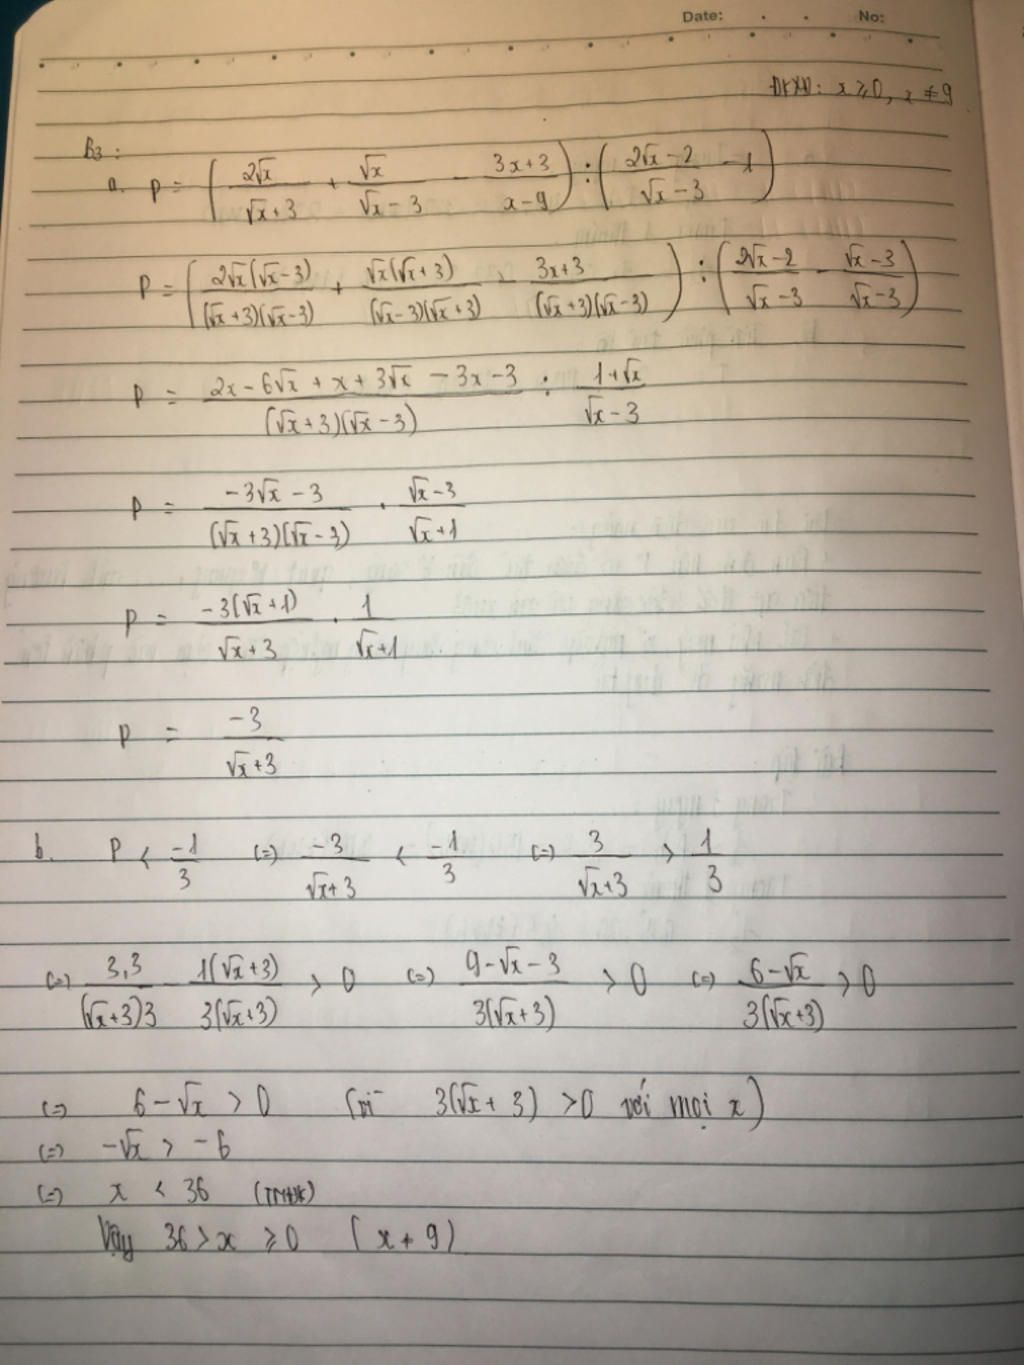 Date: No:
ĐKXĐ: x ≥ 0, x ≠ 9
B3:
a. P = (2√x/(√x+3) + √x/(√x-3) - (3x+3)/(x-9)) : ((2√x-2)/(√x-3) - 1)
P = (2√x(√x-3)/((√x+3)(√x-3)) + √x(√x+3)/((√x-3)(√x+3)) - (3x+3)/((√x+3)(√x-3))) : ((2√x-2)/(√x-3) - (√x-3)/(√x-3))
P = (2x-6√x+x+3√x-3x-3)/((√x+3)(√x-3)) : (1+√x)/(√x-3)
P = (-3√x-3)/((√x+3)(√x-3)) . (√x-3)/(√x+1)
P = -3(√x+1)/(√x+3) . 1/(√x+1)
P = -3/(√x+3)
b. P < -1/3 (=) -3/(√x+3) < -1/3 (=) 3/(√x+3) > 1/3
(=) 3.3/((√x+3)3) - 1(√x+3)/(3(√x+3)) > 0 (=) (9-√x-3)/(3(√x+3)) > 0 (=) (6-√x)/(3(√x+3)) > 0
(=) 6-√x > 0 (vì 3(√x+3) > 0 với mọi x)
(=) -√x > -6
(=) x < 36 (TMĐK)
Vậy 36 > x ≥ 0 (x ≠ 9)